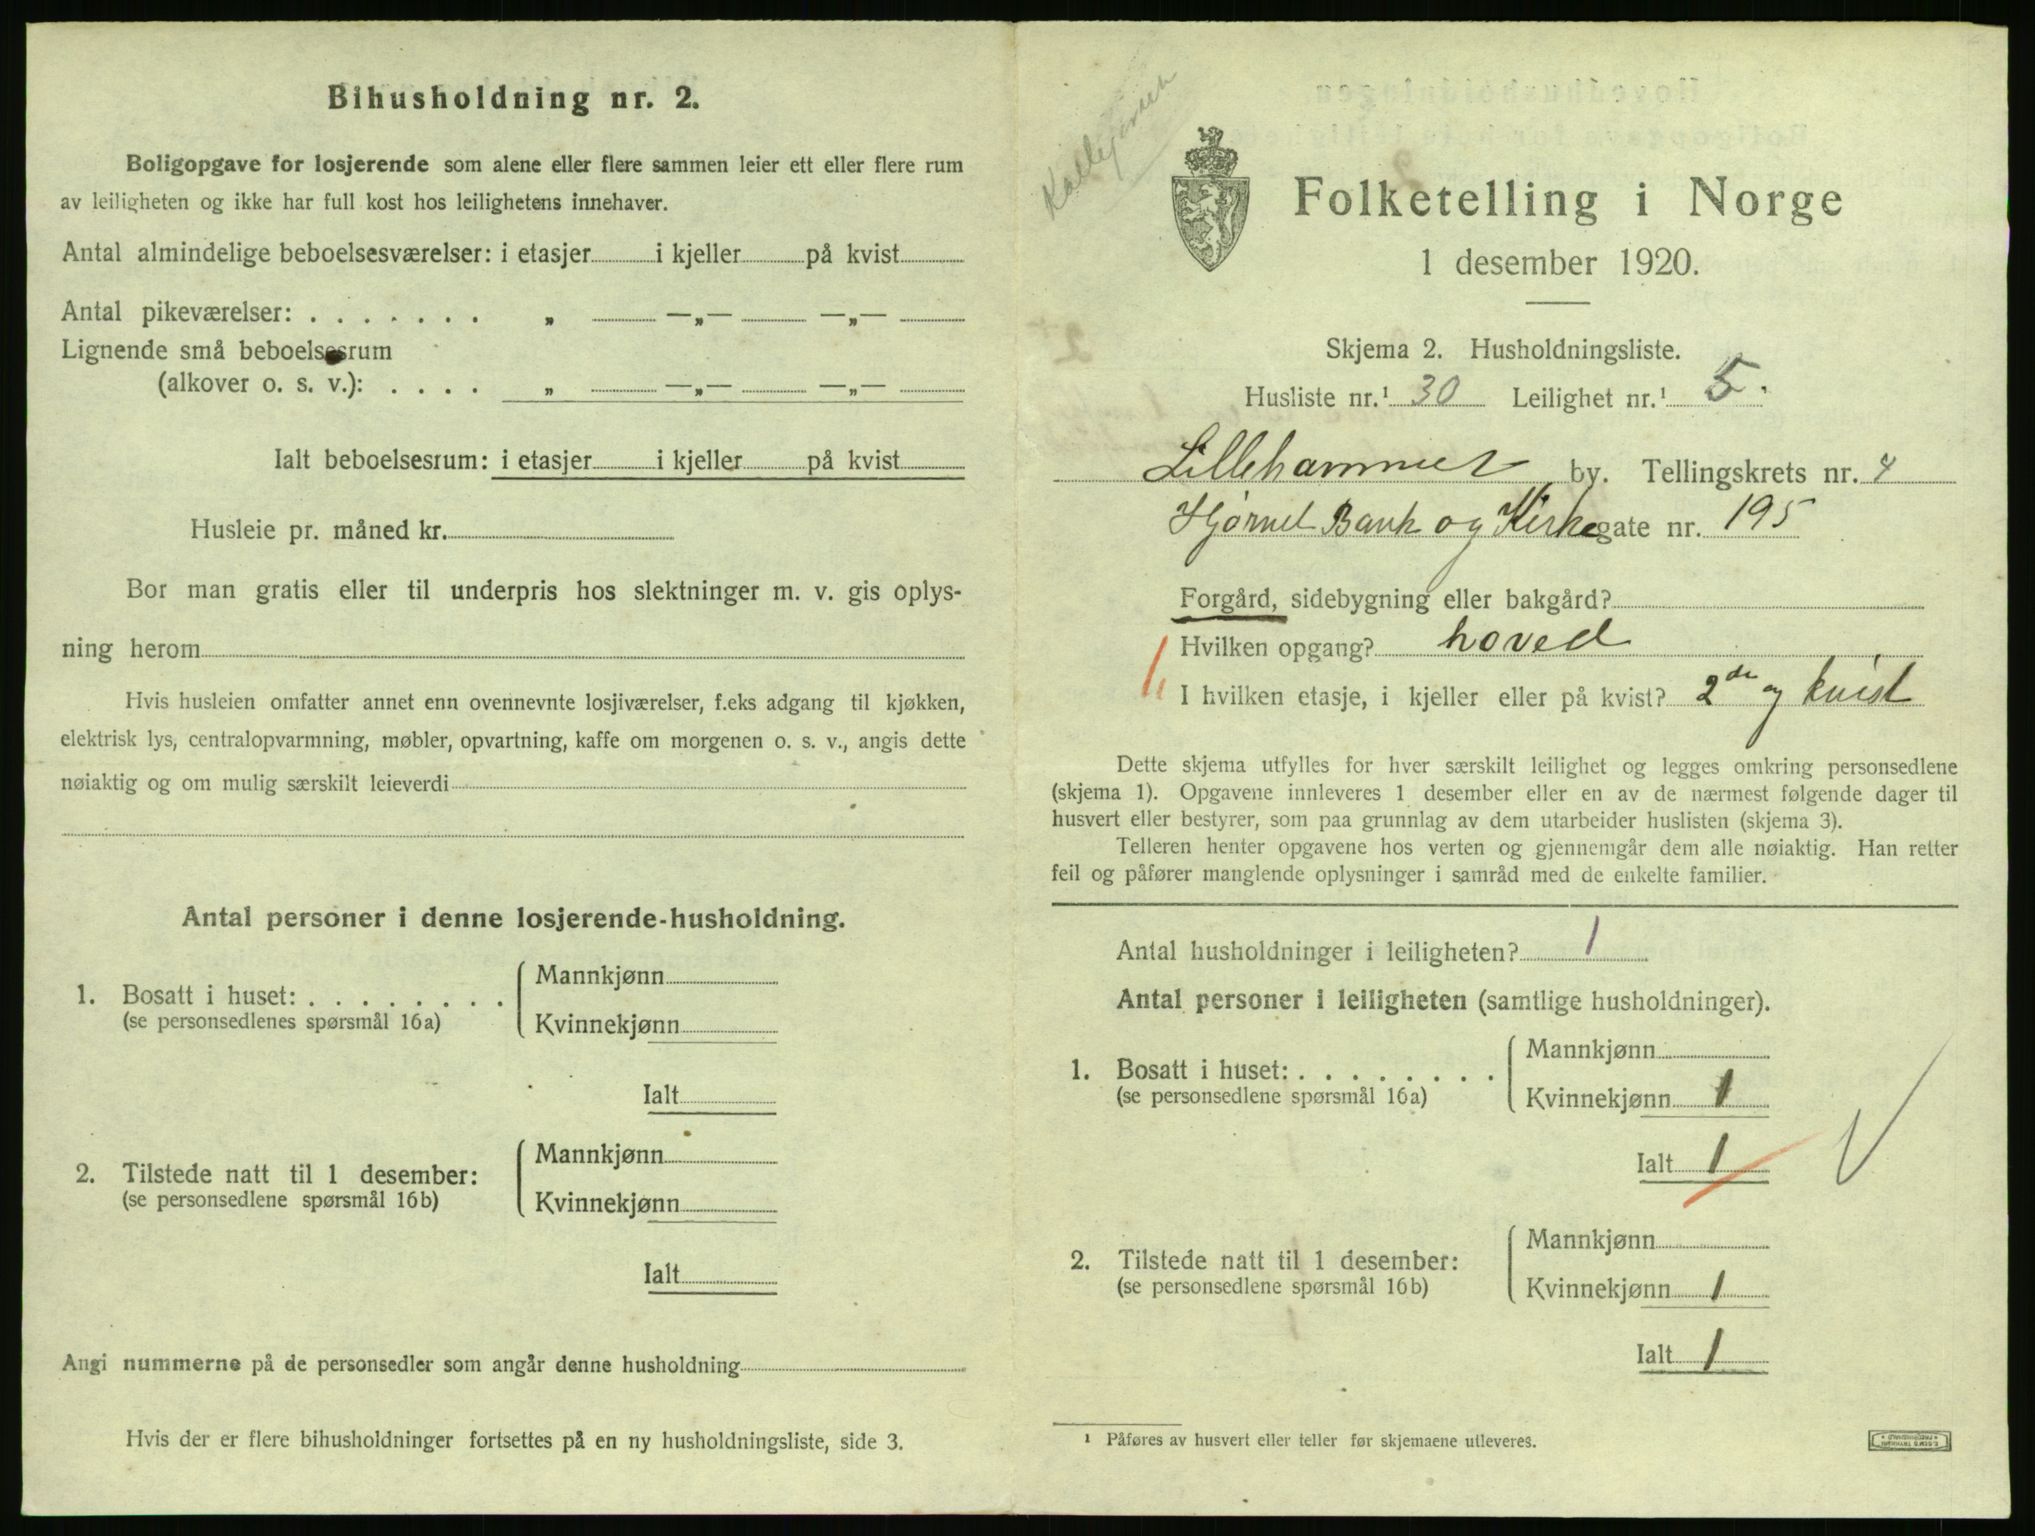 Bihusholdning nr. 2.
Boligopgave for losjerende som alene eller flere sammen leier ett eller flere rum
av leiligheten og ikke har full kost hos leilighetens innehaver.
Antal almindelige beboelsesværelser: i etasjer i kjeller på kvist
Antal pikeværelser: . . . . . . . „ —„— —„—
Lignende små beboelsesrum
(alkover o. s. v.): . . . . „ —„— —„—
Ialt beboelsesrum: i etasjer i kjeller på kvist
Husleie pr. måned kr.
Bor man gratis eller til underpris hos slektninger m. v. gis oplys-
ning herom
Hvis husleien omfatter annet enn ovennevnte losjiværelser, f.eks adgang til kjøkken,
elektrisk lys, centralopvarmning, møbler, opvartning, kaffe om morgenen o. s. v., angis dette
nøiaktig og om mulig særskilt leieverdi
Antal personer i denne losjerende-husholdning.
1. Bosatt i huset: . . . . . . . .
(se personsedlenes spørsmål 16a)
Mannkjønn
Kvinnekjønn
Ialt
2. Tilstede natt til 1 desember:
(se personsedlene spørsmål 16b)
Mannkjønn
Kvinnekjønn
Ialt
Angi nummerne på de personsedler som angår denne husholdning
Hvis der er flere bihusholdninger fortsettes på en ny husholdningsliste, side 3.
Folketelling i Norge
1 desember 1920.
Skjema 2. Husholdningsliste.
Husliste nr.¹ 30 Leilighet nr.¹ 5.
Lillehammer by. Tellingskrets nr. 4
Hjørnet Bank og Kirkegate nr. 195
Forgård, sidebygning eller bakgård?
Hvilken opgang? hoved
I hvilken etasje, i kjeller eller på kvist? 2de og kvist
Dette skjema utfylles for hver særskilt leilighet og legges omkring personsedlene
(skjema 1). Opgavene innleveres 1 desember eller en av de nærmest følgende dager til
husvert eller bestyrer, som paa grunnlag av dem utarbeider huslisten (skjema 3).
Telleren henter opgavene hos verten og gjennemgår dem alle nøiaktig. Han retter
feil og påfører manglende oplysninger i samråd med de enkelte familier.
Antal husholdninger i leiligheten? 1
Antal personer i leiligheten (samtlige husholdninger).
1. Bosatt i huset: . . . . . . . .
(se personsedlene spørsmål 16a)
Mannkjønn
Kvinnekjønn 1
Ialt 1
2. Tilstede natt til 1 desember:
(se personsedlene spørsmål 16b)
Mannkjønn
Kvinnekjønn 1
Ialt 1
¹ Påføres av husvert eller teller før skjemaene utleveres.